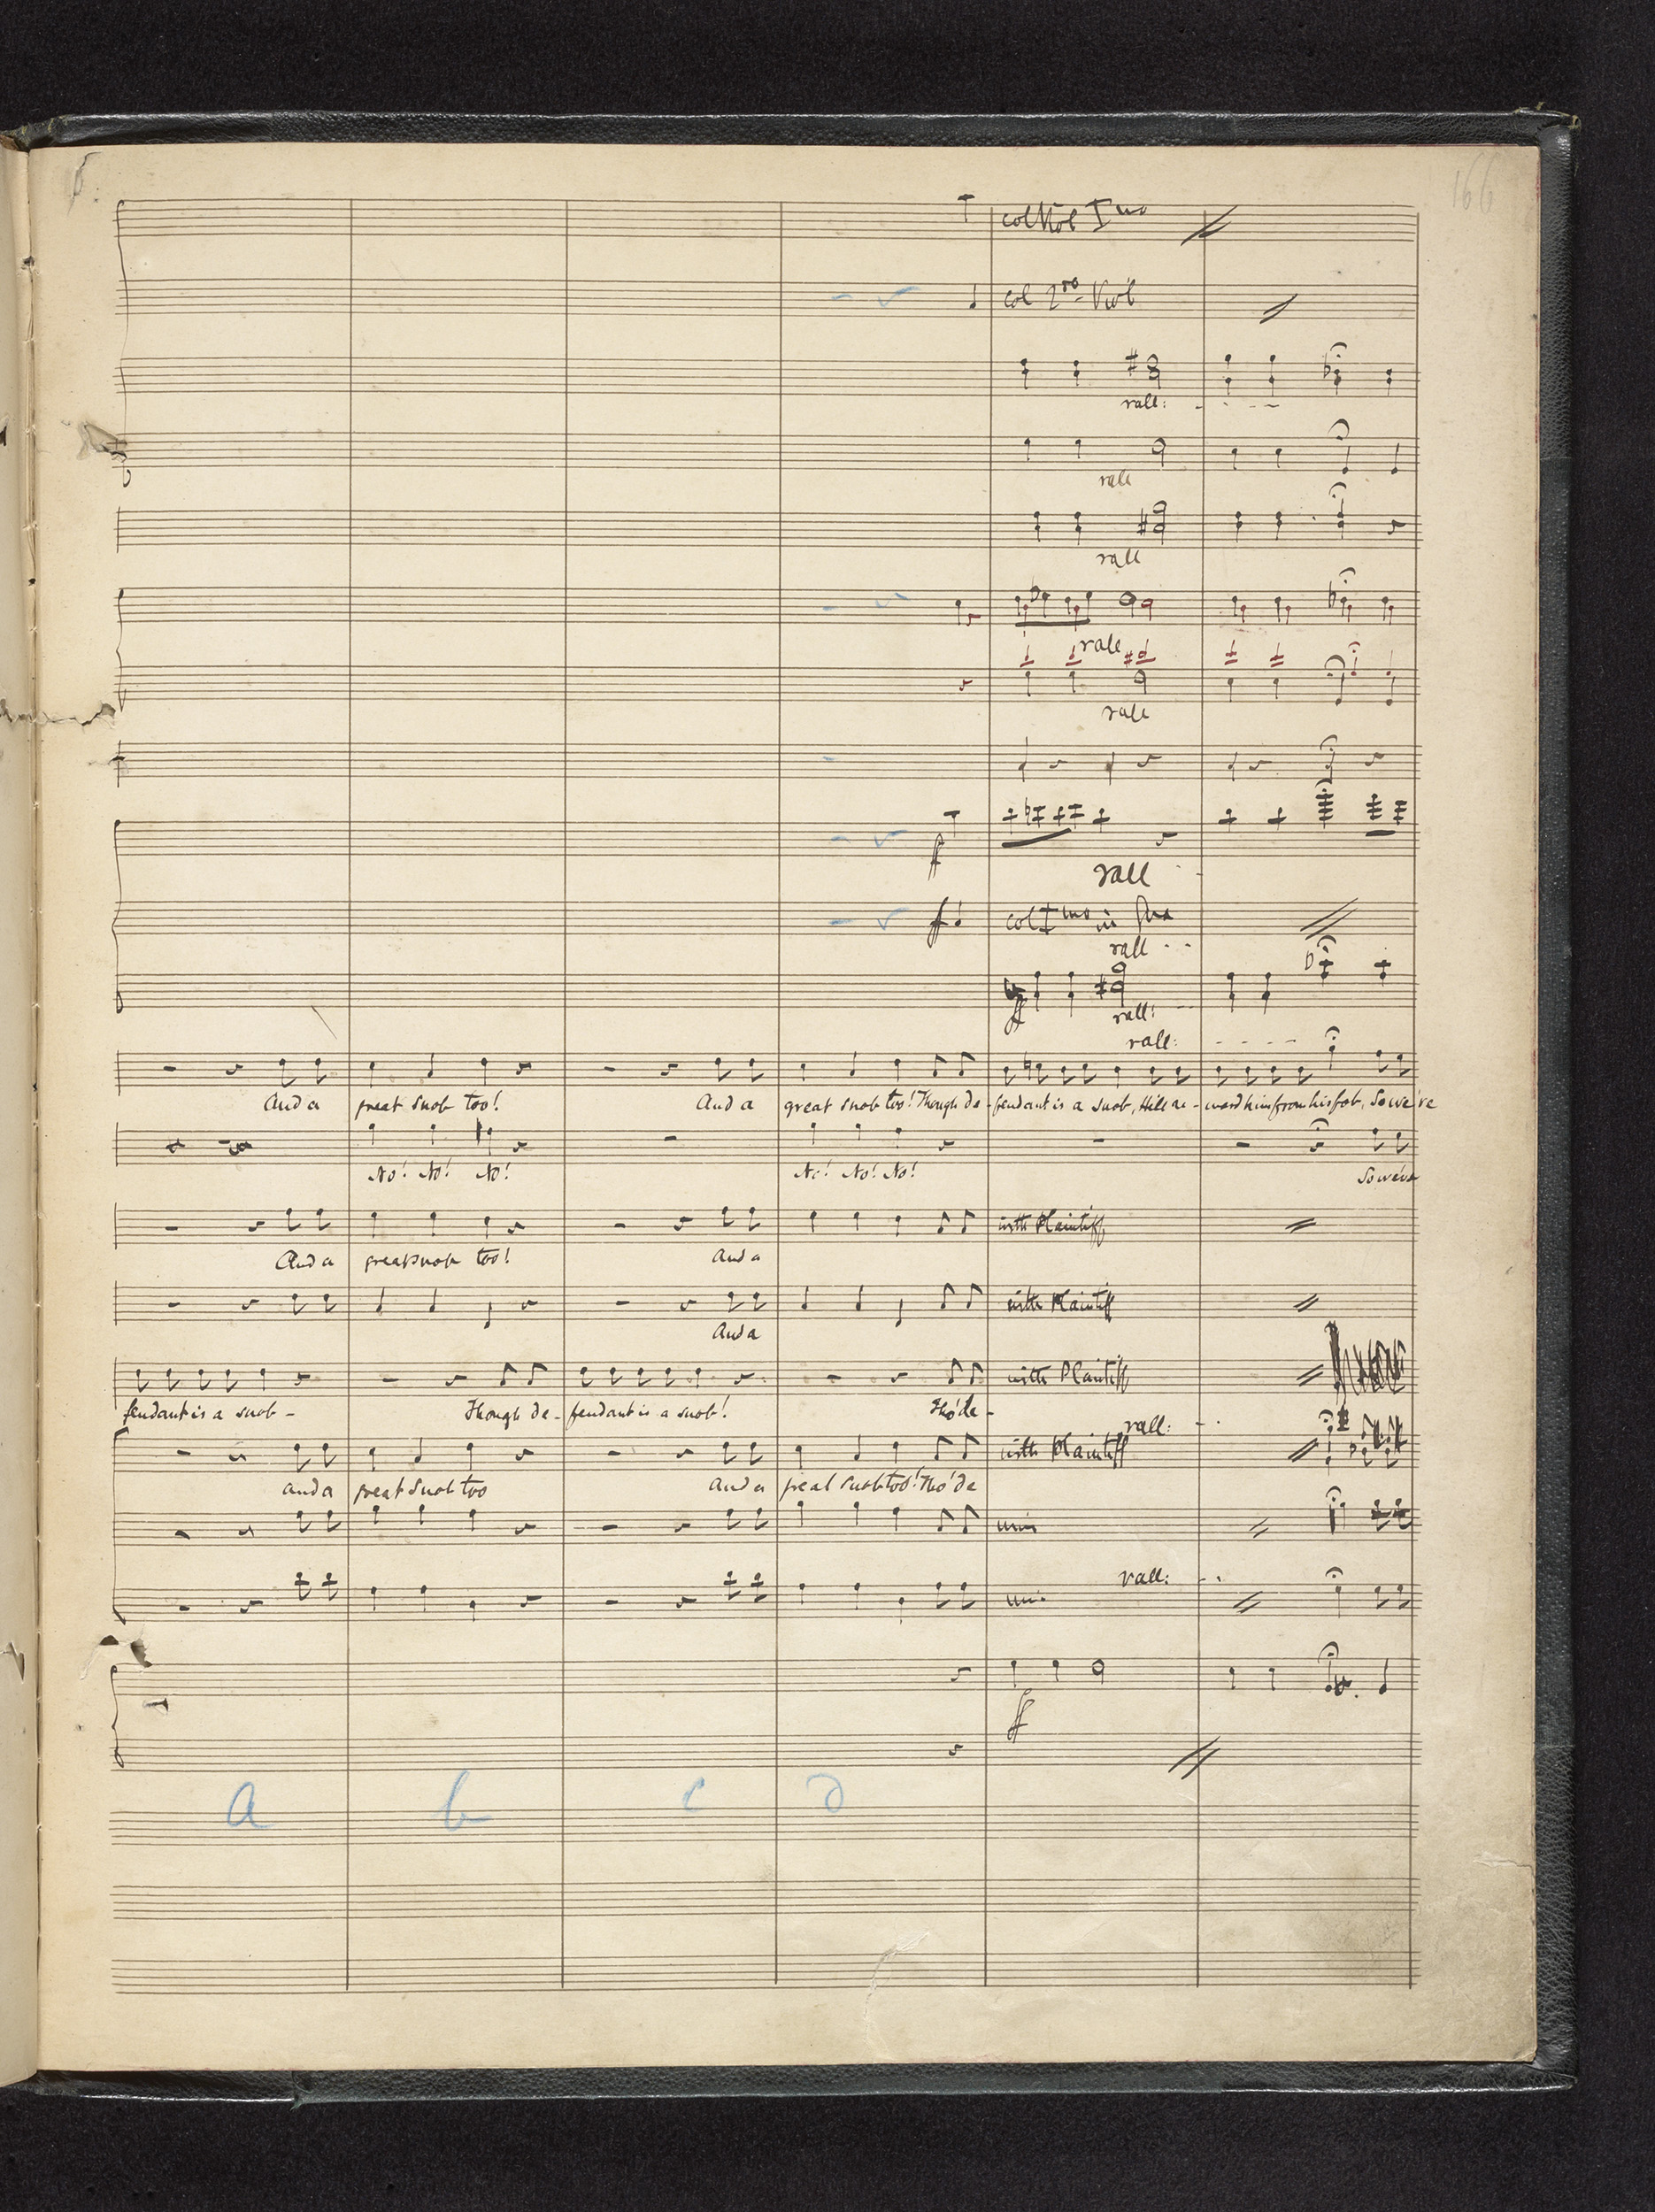 166
col Viol Imo
col 2do Viol
rall:
rall
rall
rall
rall
ff
rall
ff col Imo in 8va
rall
ff rall:
rall:
And a great snob too! And a great snob too! Though de-fendant is a snob, He'll re-ward him from his fob, So we've
No! No! No! No! No! No! So we've
And a great snob too! And a with Plaintiff
And a with Plaintiff
fendant is a snob - Though de-fendant is a snob! Tho' de - with Plaintiff
rall:
And a great snob too And a great snob too! Tho' de with Plaintiff
unis
rall:
unis
ff
a b c d